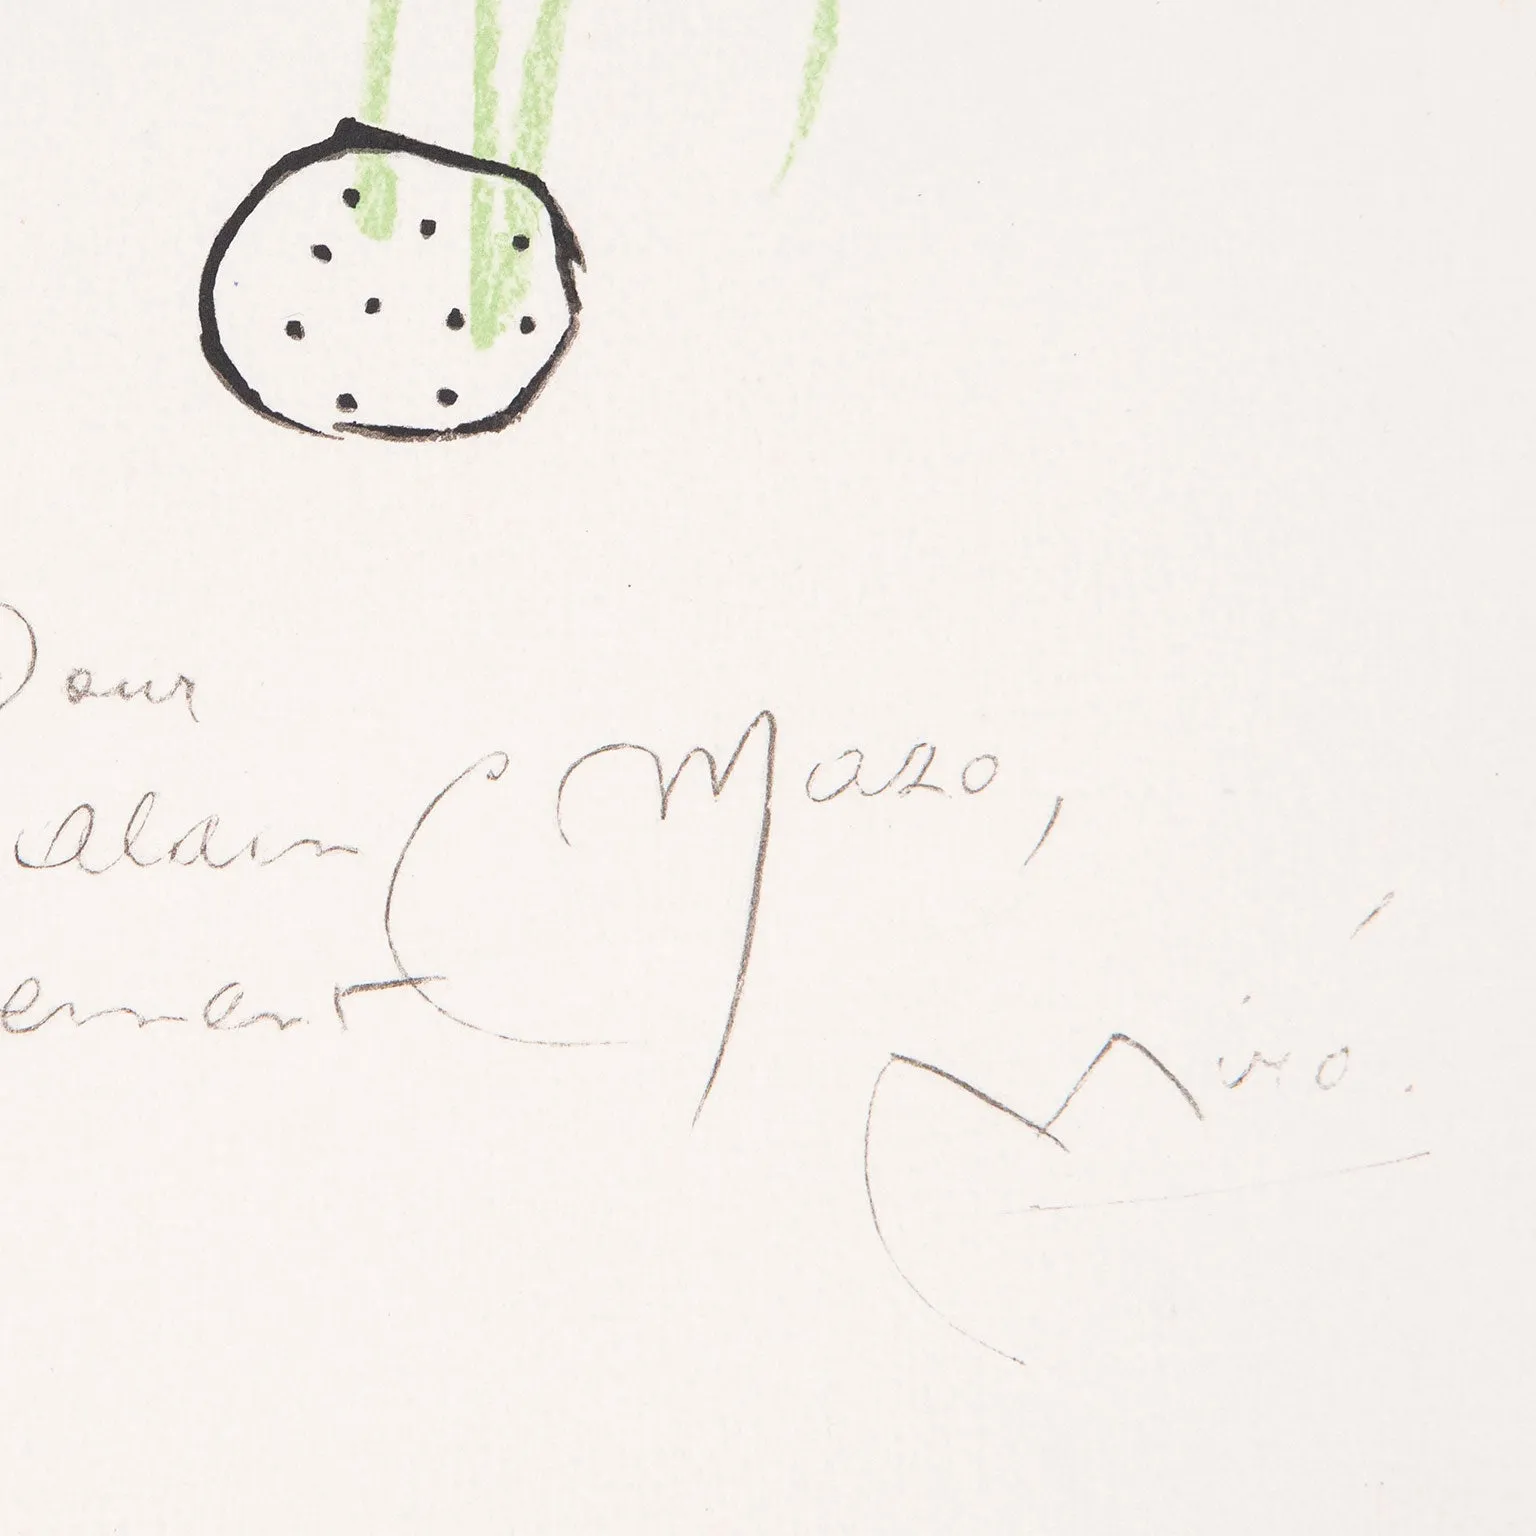 Pour
Alain Mazo,
ement
Miró.